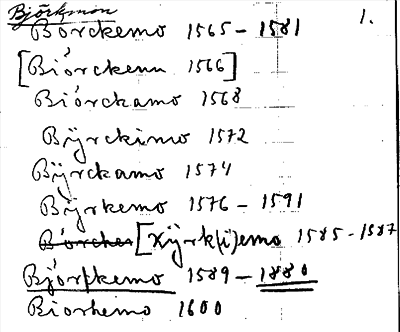 Björkmon
1.
Bórckemo 1565-1581
[Biórckenn 1566]
Biórckamo 1568
Bÿrckimo 1572
Bÿrckamo 1574
Bÿrkemo 1576-1591
[Kÿrk(i)emo 1585-1587
Bjórkemo 1589-1880
Biorkemo 1600